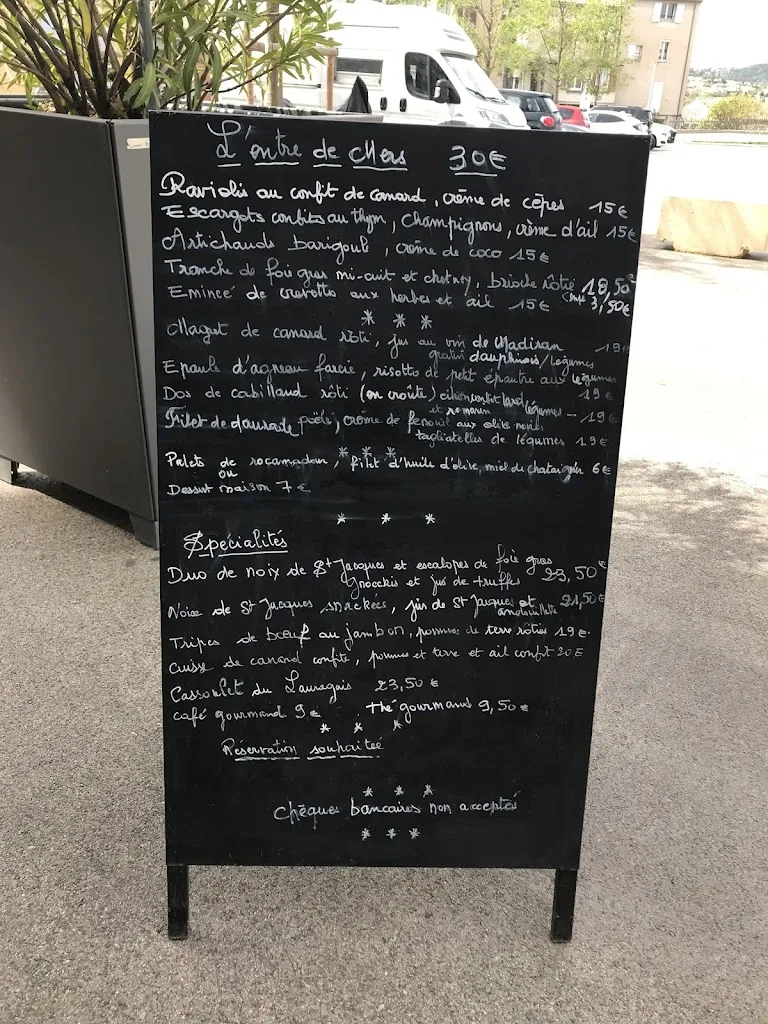 L'entre de Mers 30€
Raviolis au confit de canard, crème de cèpes 15€
Escargots confits au thym, champignons, crème d'ail 15€
Artichauds barigoule, crème de coco 15€
Tranche de foie gras mi-cuit et chutney, brioche rôtie 18,50€
3,50€
Emincé de crevettes aux herbes et ail 15€
* * *
Magret de canard rôti, jus au vin de Madiran 19€
gratin dauphinois/légumes
Epaule d'agneau farcie, risotto de petit épeautre aux légumes
19€
Dos de cabillaud rôti (en croûte)
et romarin légumes - 19€
Filet de daurade poêlé, crème de fenouil aux olives noires
tagliatelles de légumes 19€
* * *
Palets de rocamadour, filet d'huile d'olive, miel du chataignier 6€
ou
Dessert maison 7€
* * *
Spécialités
Duo de noix de St Jacques et escalopes de foie gras
Gnocchis et jus de truffes 23,50€
Noix de St Jacques snackées, jus de St Jacques et 21,50€
andouillette
Tripes de bœuf au jambon, pommes de terre rôties 19€.
Cuisse de canard confite, pommes et terre et ail confit 20€
Cassoulet du Lauragais 23,50€
café gourmand 9€ . thé gourmand 9,50€
* * *
Réservation souhaitée
* * *
Chèques bancaires non acceptés
* * *